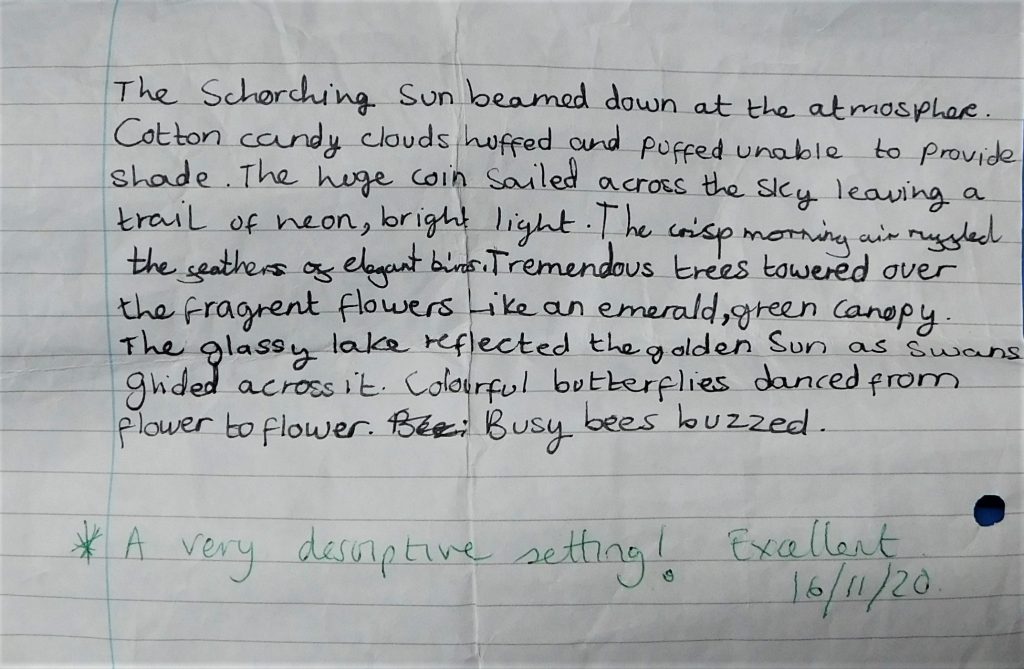 The Schorching Sun beamed down at the atmosphere.
Cotton candy clouds huffed and puffed unable to provide
shade. The huge coin sailed across the sky leaving a
trail of neon, bright light. The crisp morning air ruffled
the feathers of elegant birds. Tremendous trees towered over
the fragrent flowers like an emerald, green canopy.
The glassy lake reflected the golden Sun as swans
glided across it. Colourful butterflies danced from
flower to flower. Busy bees buzzed.
* A very descriptive setting! Excellent
16/11/20.